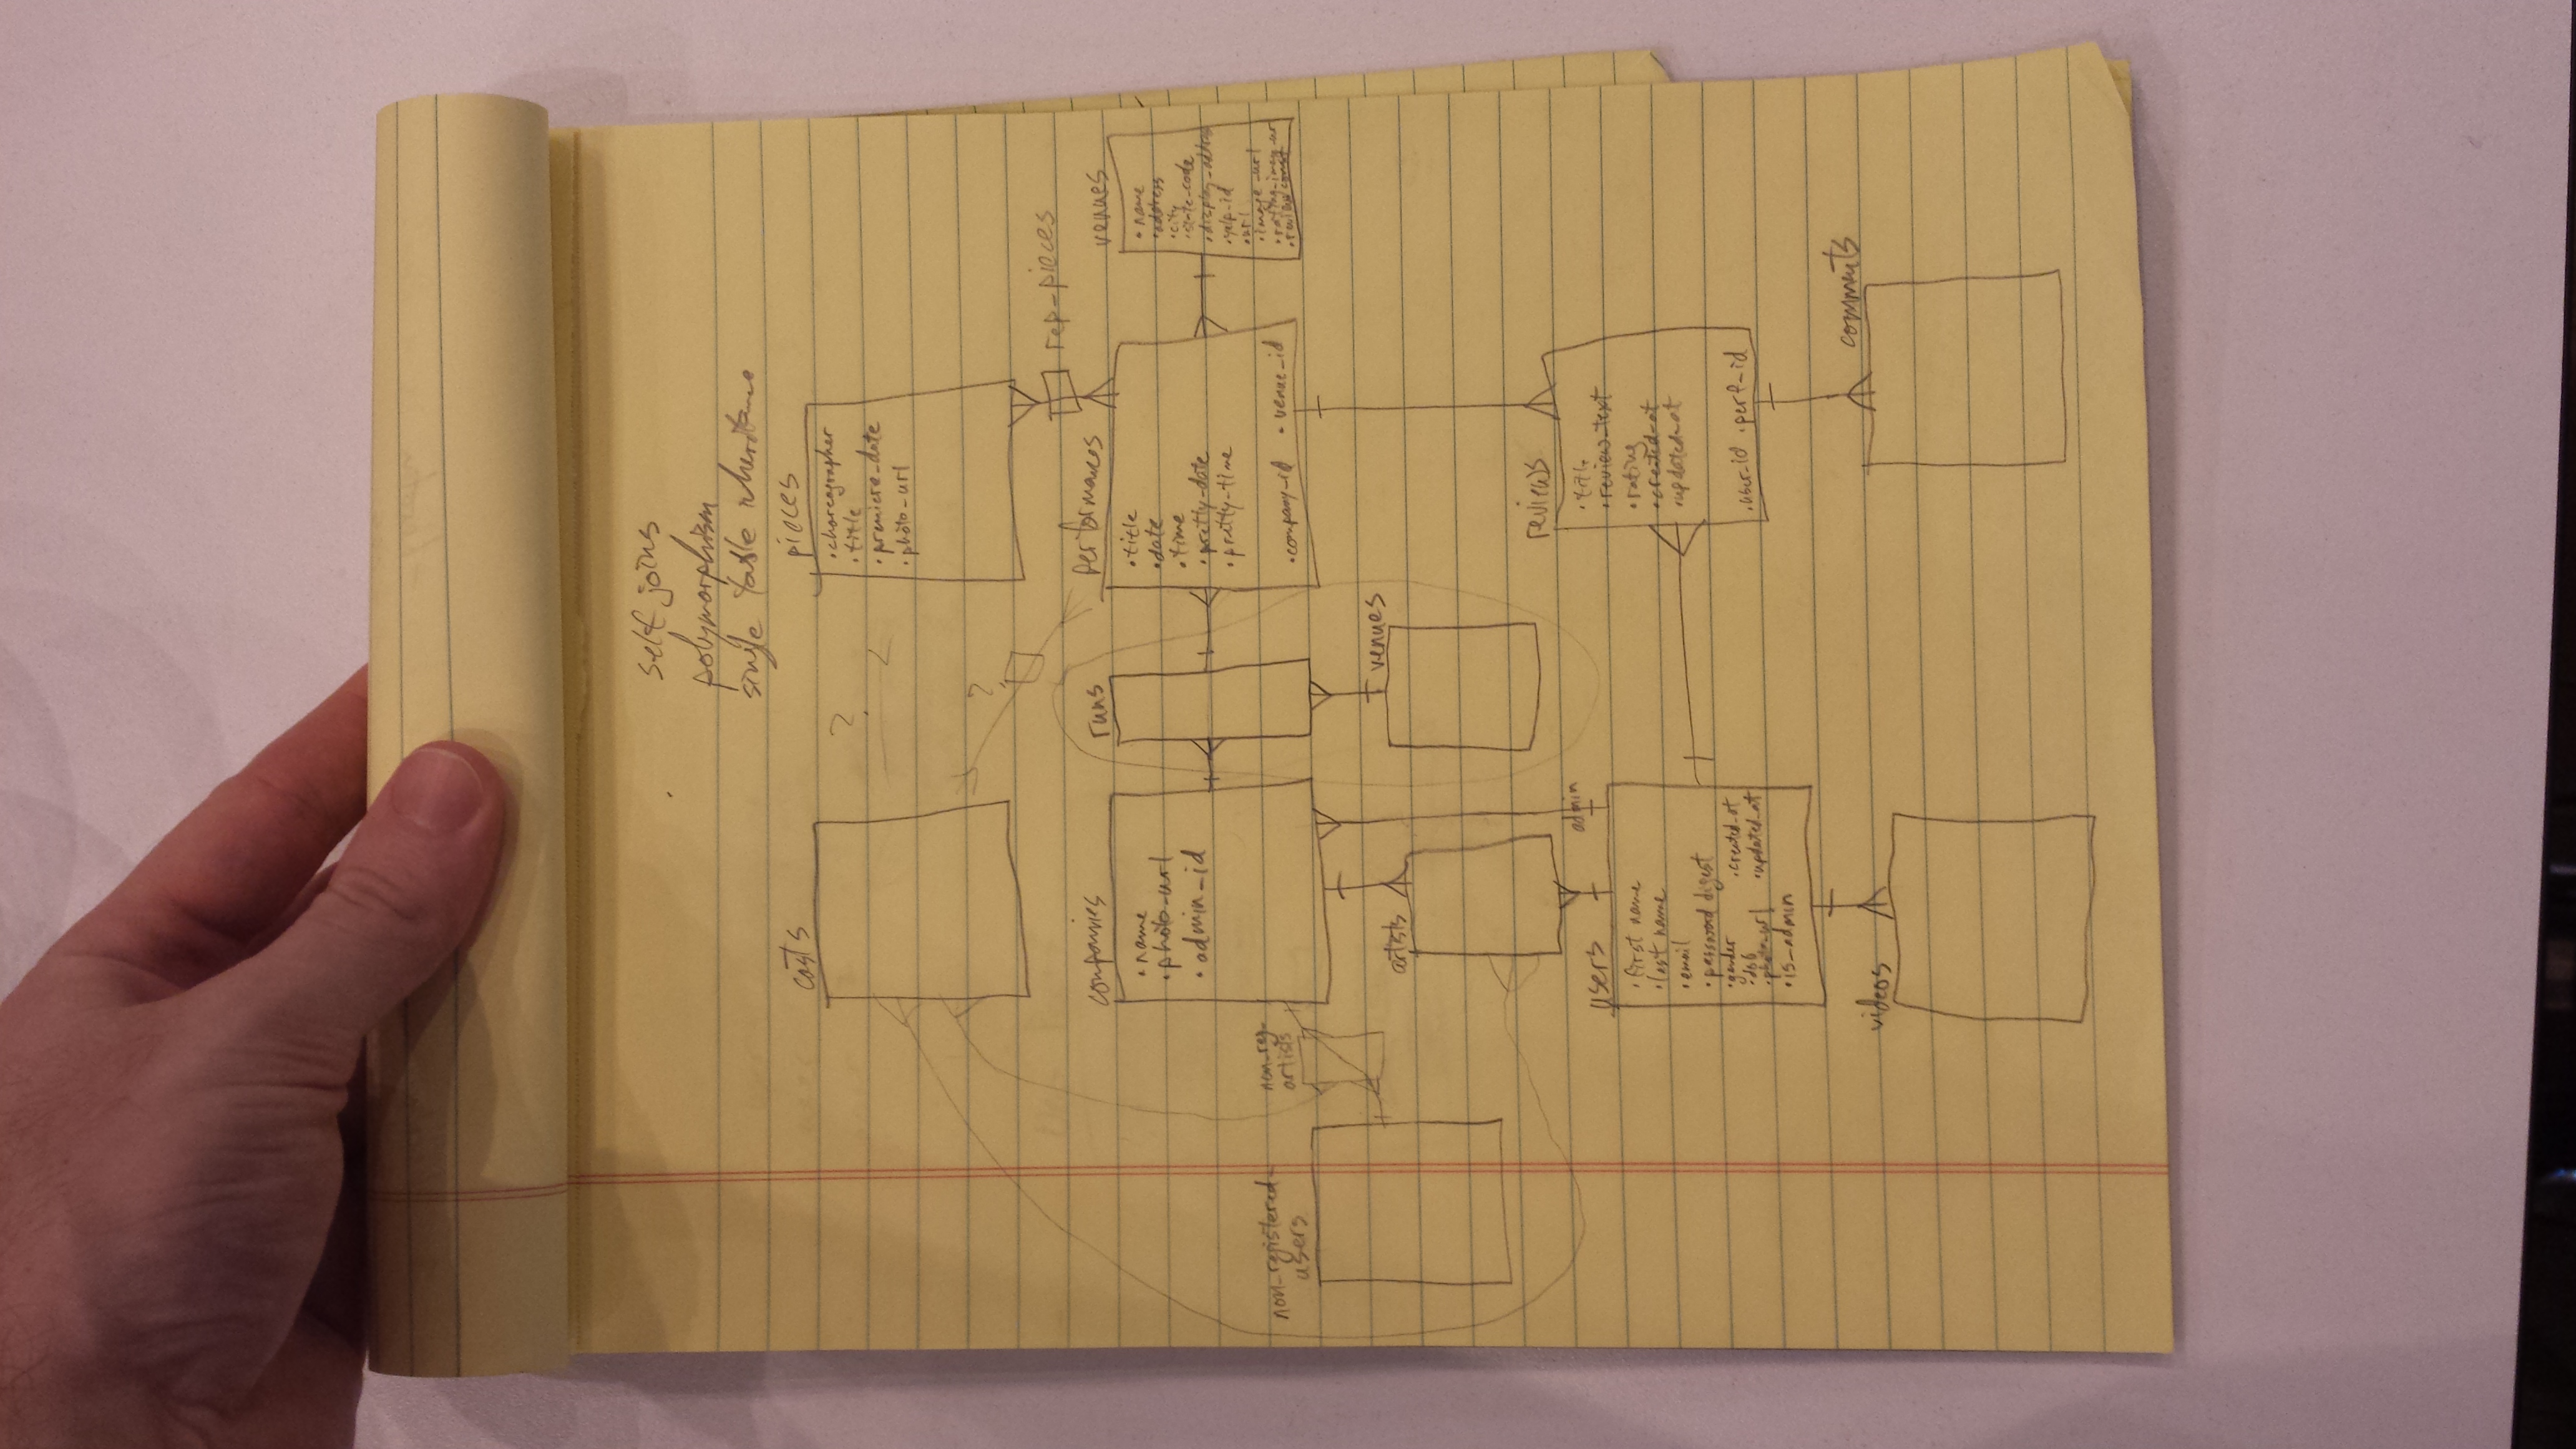 self joins
polymorphism
single table inheritance
casts
pieces
• choreographer
• title
• premiere_date
• photo_url
?
?
rep_pieces
companies
• name
• photo_url
• admin_id
runs
performances
• title
• date
• time
• pretty_date
• pretty_time
• company_id • venue_id
venues
• name
• address
• city
• state_code
• display_address
• yelp_id
• url
• image_url
• review count
non_registered_
users
non_reg_
artists
artists
venues
admin
users
• first name
• last name
• email
• password digest
• gender • created_at
• dob
• photo_url • updated_at
• is_admin
reviews
• title
• review_text
• rating
• created_at
• updated_at
• user_id • perf_id
videos
comments